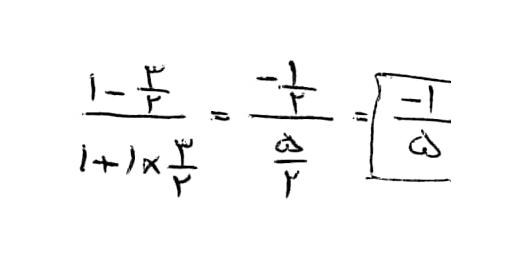 (۱ - ۳/۲) / (۱ + ۱ × ۳/۲) = (-۱/۲) / (۵/۲) = -۱/۵